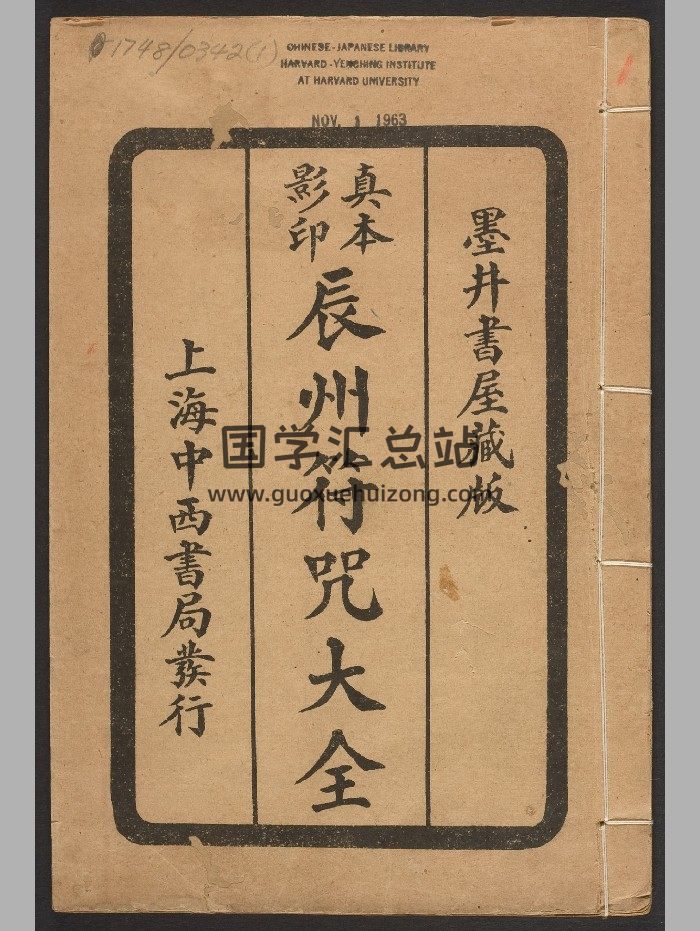 1748/0342(1)
CHINESE-JAPANESE LIBRARY
HARVARD-YENCHING INSTITUTE
AT HARVARD UNIVERSITY
NOV. 1 1963
墨井書屋藏版
真本
影印
辰州符咒大全
上海中西書局發行
国学汇总站
www.guoxuehuizong.com